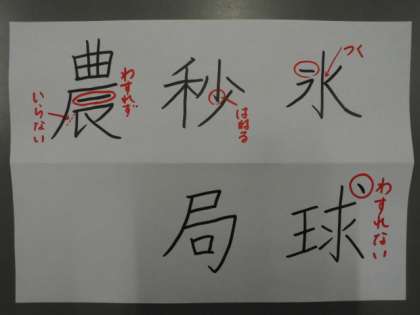 氷
つく
秒
はねる
農
わすれず
いらない
球
わすれない
局